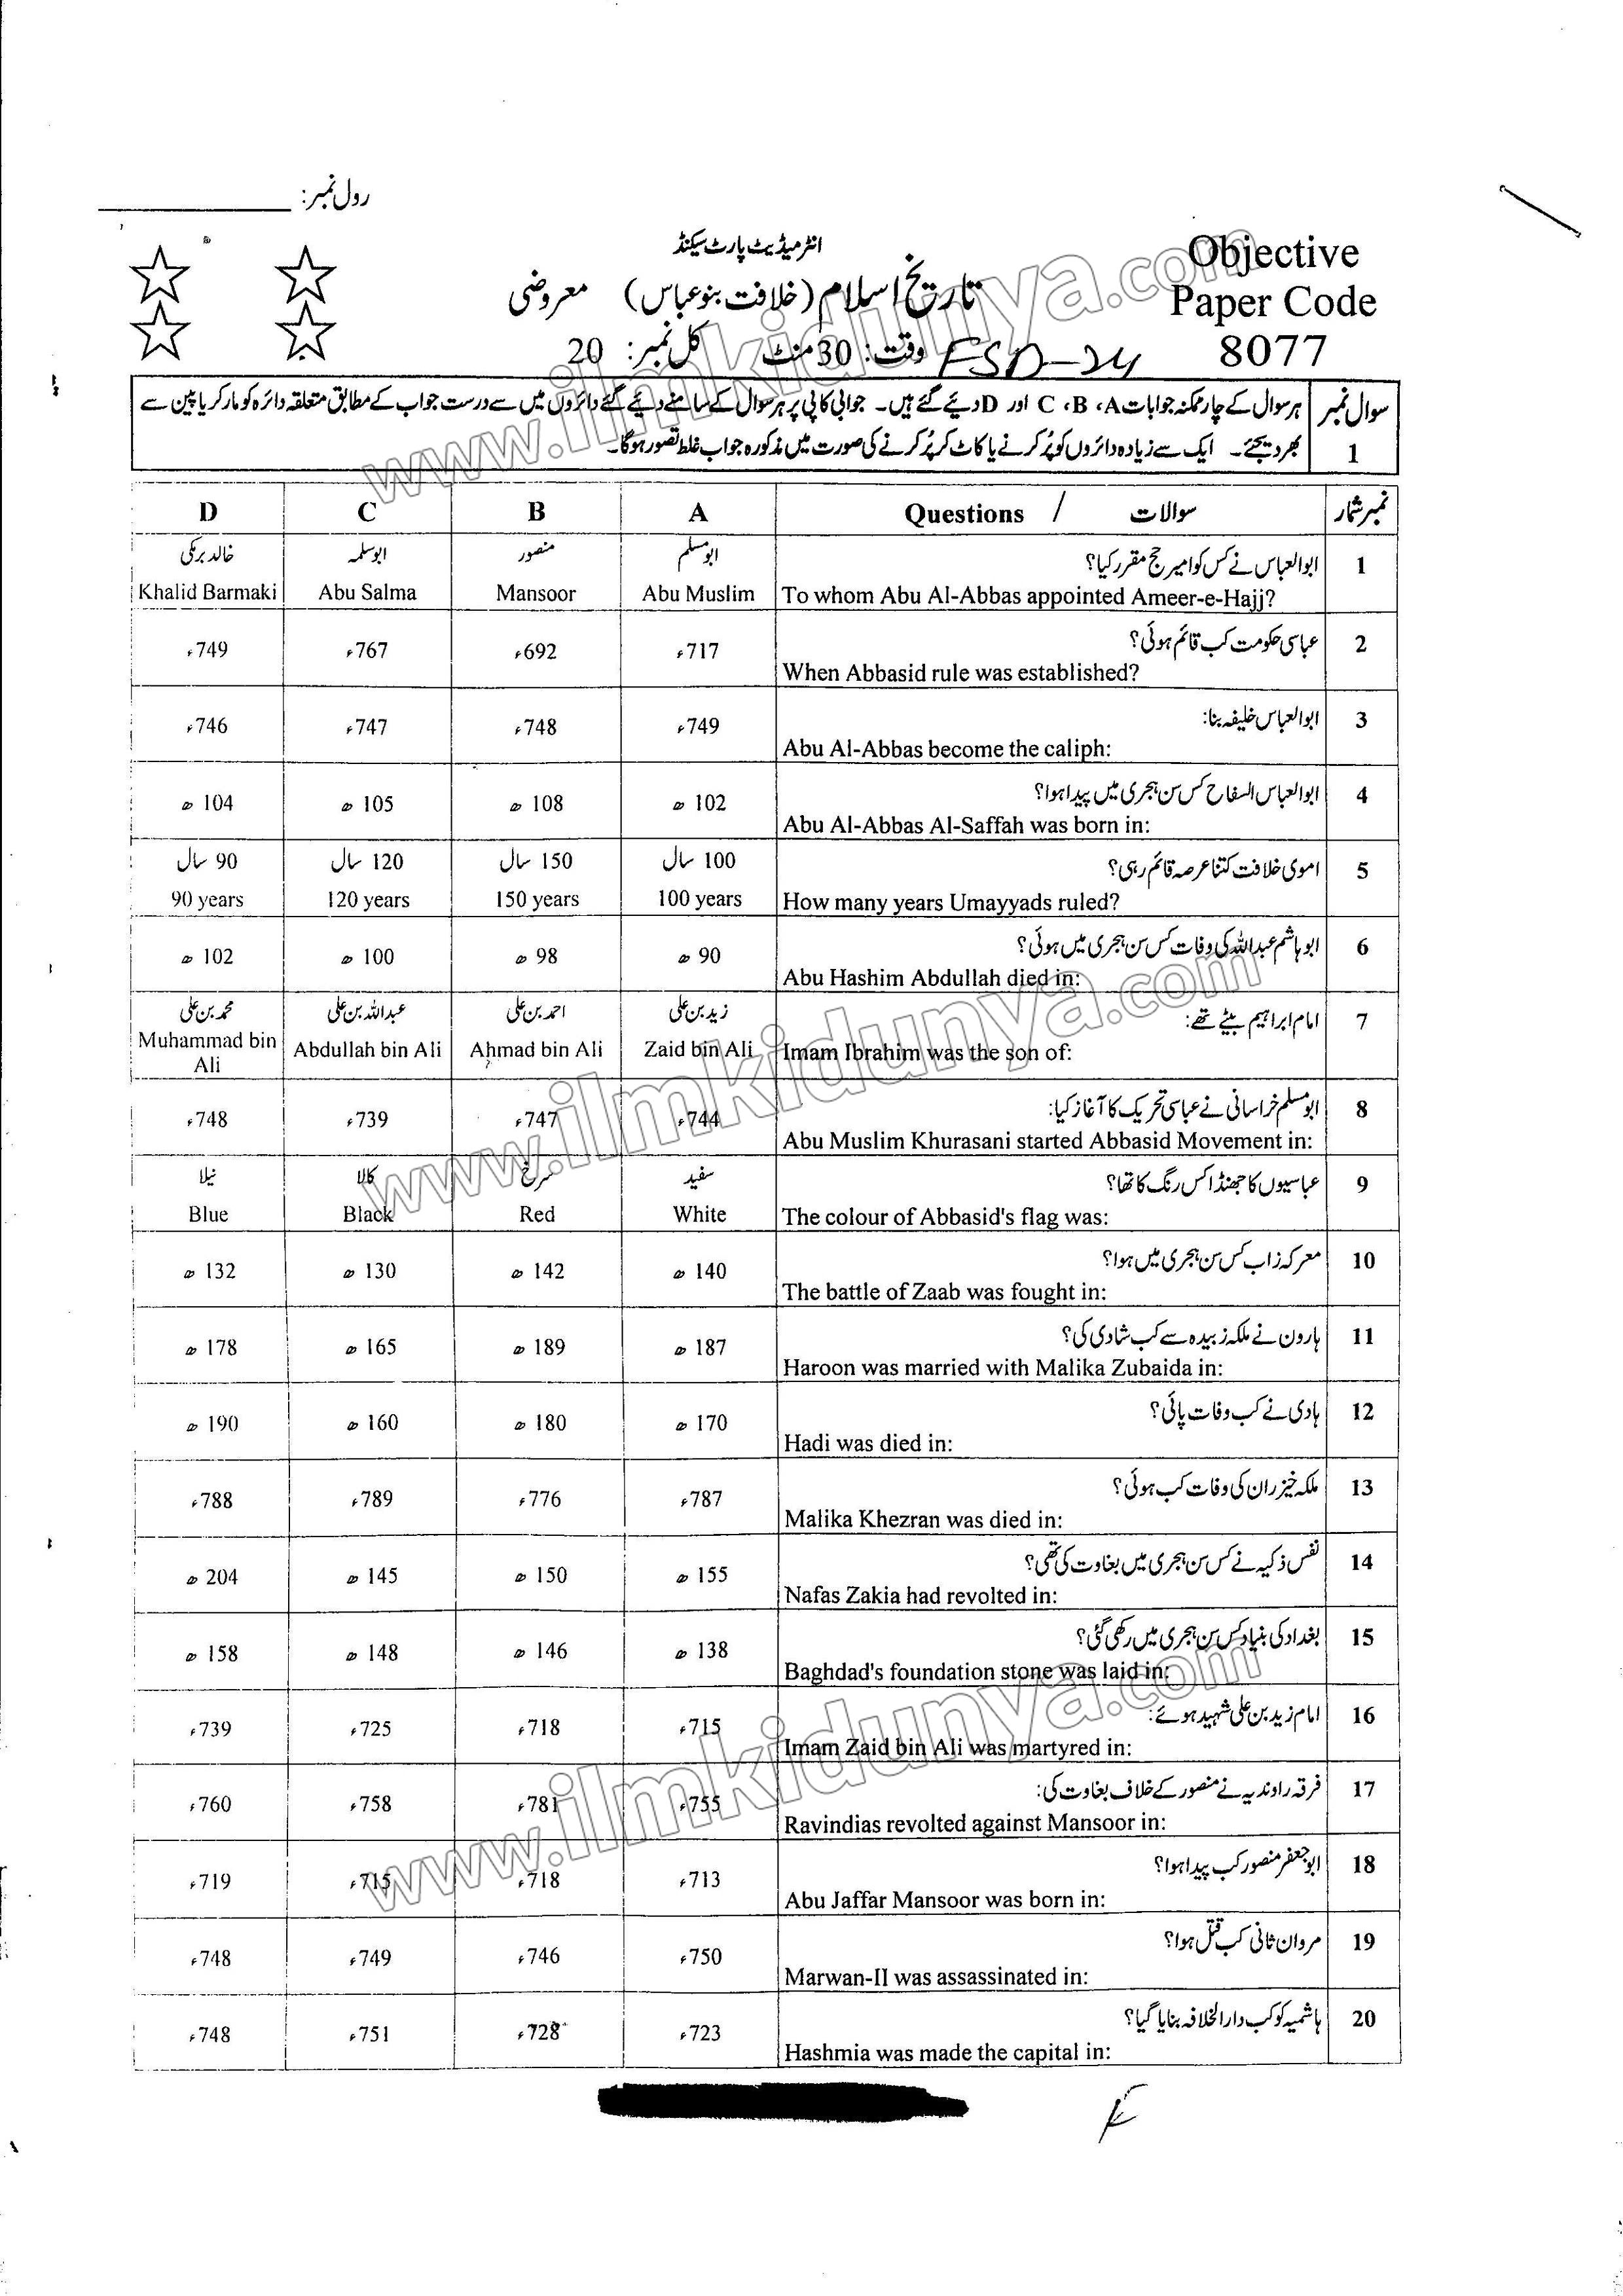 رول نمبر: ____________
انٹرمیڈیٹ پارٹ سیکنڈ
Objective
تاریخ اسلام (خلافت بنو عباس) معروضی
Paper Code
وقت: 30 منٹ کل نمبر: 20
FSD-24
8077
سوال نمبر 1
ہر سوال کے چار ممکنہ جوابات A، B، C اور D دیئے گئے ہیں۔ جوابی کاپی پر ہر سوال کے سامنے دیئے گئے دائروں میں سے درست جواب کے مطابق متعلقہ دائرہ کو مارکر یا پین سے
بھر دیجئے۔ ایک سے زیادہ دائروں کو پُر کرنے یا کاٹ کر پُر کرنے کی صورت میں مذکورہ جواب غلط تصور ہوگا۔
نمبر شمار سوالات / Questions A B C D
1 ابوالعباس نے کس کو امیر حج مقرر کیا؟ ابو مسلم منصور ابوسلمہ خالد برمکی
To whom Abu Al-Abbas appointed Ameer-e-Hajj? Abu Muslim Mansoor Abu Salma Khalid Barmaki
2 عباسی حکومت کب قائم ہوئی؟ 717ء 692ء 767ء 749ء
When Abbasid rule was established?
3 ابوالعباس خلیفہ بنا: 749ء 748ء 747ء 746ء
Abu Al-Abbas become the caliph:
4 ابوالعباس السفاح کس سن ہجری میں پیدا ہوا؟ 102 ھ 108 ھ 105 ھ 104 ھ
Abu Al-Abbas Al-Saffah was born in:
5 اموی خلافت کتنا عرصہ قائم رہی؟ 100 سال 150 سال 120 سال 90 سال
How many years Umayyads ruled? 100 years 150 years 120 years 90 years
6 ابو ہاشم عبداللہ کی وفات کس سن ہجری میں ہوئی؟ 90 ھ 98 ھ 100 ھ 102 ھ
Abu Hashim Abdullah died in:
7 امام ابراہیم بیٹے تھے: زید بن علی احمد بن علی عبداللہ بن علی محمد بن علی
Imam Ibrahim was the son of: Zaid bin Ali Ahmad bin Ali Abdullah bin Ali Muhammad bin Ali
8 ابو مسلم خراسانی نے عباسی تحریک کا آغاز کیا: 744ء 747ء 739ء 748ء
Abu Muslim Khurasani started Abbasid Movement in:
9 عباسیوں کا جھنڈا کس رنگ کا تھا؟ سفید سرخ کالا نیلا
The colour of Abbasid's flag was: White Red Black Blue
10 معرکہ زاب کس سن ہجری میں ہوا؟ 140 ھ 142 ھ 130 ھ 132 ھ
The battle of Zaab was fought in:
11 ہارون نے ملکہ زبیدہ سے کب شادی کی؟ 187 ھ 189 ھ 165 ھ 178 ھ
Haroon was married with Malika Zubaida in:
12 ہادی نے کب وفات پائی؟ 170 ھ 180 ھ 160 ھ 190 ھ
Hadi was died in:
13 ملکہ خیزران کی وفات کب ہوئی؟ 787ء 776ء 789ء 788ء
Malika Khezran was died in:
14 نفس ذکیہ نے کس سن ہجری میں بغاوت کی تھی؟ 155 ھ 150 ھ 145 ھ 204 ھ
Nafas Zakia had revolted in:
15 بغداد کی بنیاد کس سن ہجری میں رکھی گئی؟ 138 ھ 146 ھ 148 ھ 158 ھ
Baghdad's foundation stone was laid in:
16 امام زید بن علی شہید ہوئے: 715ء 718ء 725ء 739ء
Imam Zaid bin Ali was martyred in:
17 فرقہ راوندیہ نے منصور کے خلاف بغاوت کی: 755ء 781ء 758ء 760ء
Ravindias revolted against Mansoor in:
18 ابو جعفر منصور کب پیدا ہوا؟ 713ء 718ء 715ء 719ء
Abu Jaffar Mansoor was born in:
19 مروان ثانی کب قتل ہوا؟ 750ء 746ء 749ء 748ء
Marwan-II was assassinated in:
20 ہاشمیہ کو کب دارالخلافہ بنایا گیا؟ 723ء 728ء 751ء 748ء
Hashmia was made the capital in:
www.ilmkidunya.com
www.ilmkidunya.com
www.ilmkidunya.com